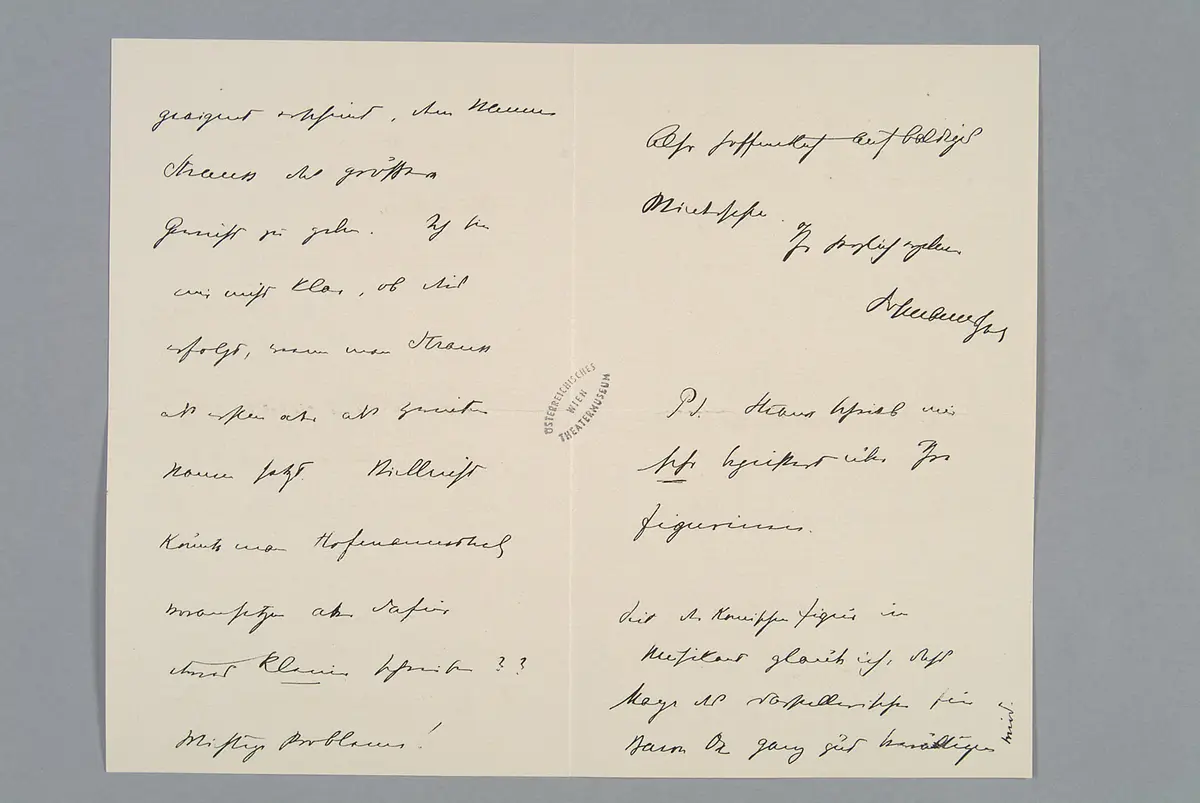 geeignet erscheint, dem Namen
Strauss das größere
Gewicht zu geben. Ich bin
mir nicht klar, ob dies
erfolgt, wenn man Strauss
als ersten oder als zweiten
Namen setzt. Vielleicht
könnte man Hofmannsthal
voransetzen aber dafür
etwas kleiner schreiben ??
Wichtige Probleme!
Also hoffentlich auf baldiges
Ihr herzlich ergebener
PS. Strauss schrieb mir
sehr begeistert über Ihre
Figurinen.
die komische Figur im
glaube ich, dass
Mayr das darstellerische für
Baron Ox ganz gut bewältigen
wird.
ÖSTERREICHISCHES
WIEN
THEATERMUSEUM